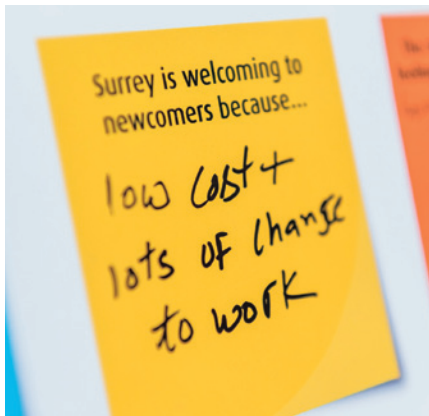 Surrey is welcoming to
newcomers because...
low cost +
lots of change
to work